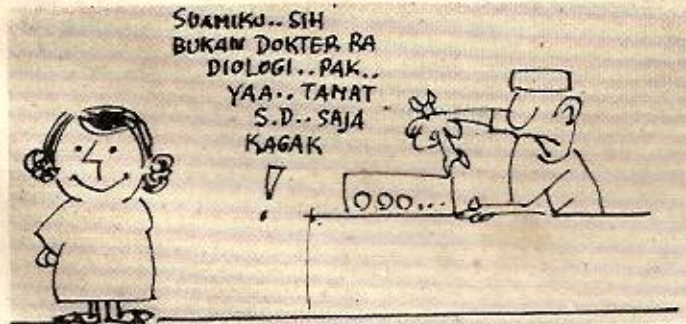 SUAMIKU.. SIH
BUKAN DOKTER RA
DIOLOGI.. PAK..
YAA.. TAMAT
S.D.. SAJA
KAGAK
!